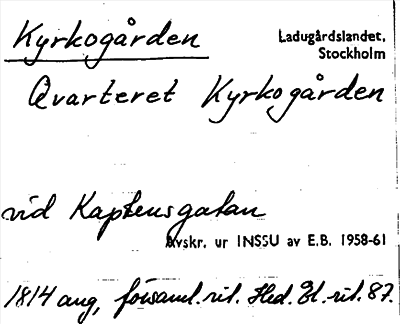 Kyrkogården
Ladugårdslandet,
Stockholm
Qvarteret Kyrkogården
vid Kaptensgatan
Avskr. ur INSSU av E.B. 1958-61
1814 aug, församl.rit. Hed. El. rit. 87.